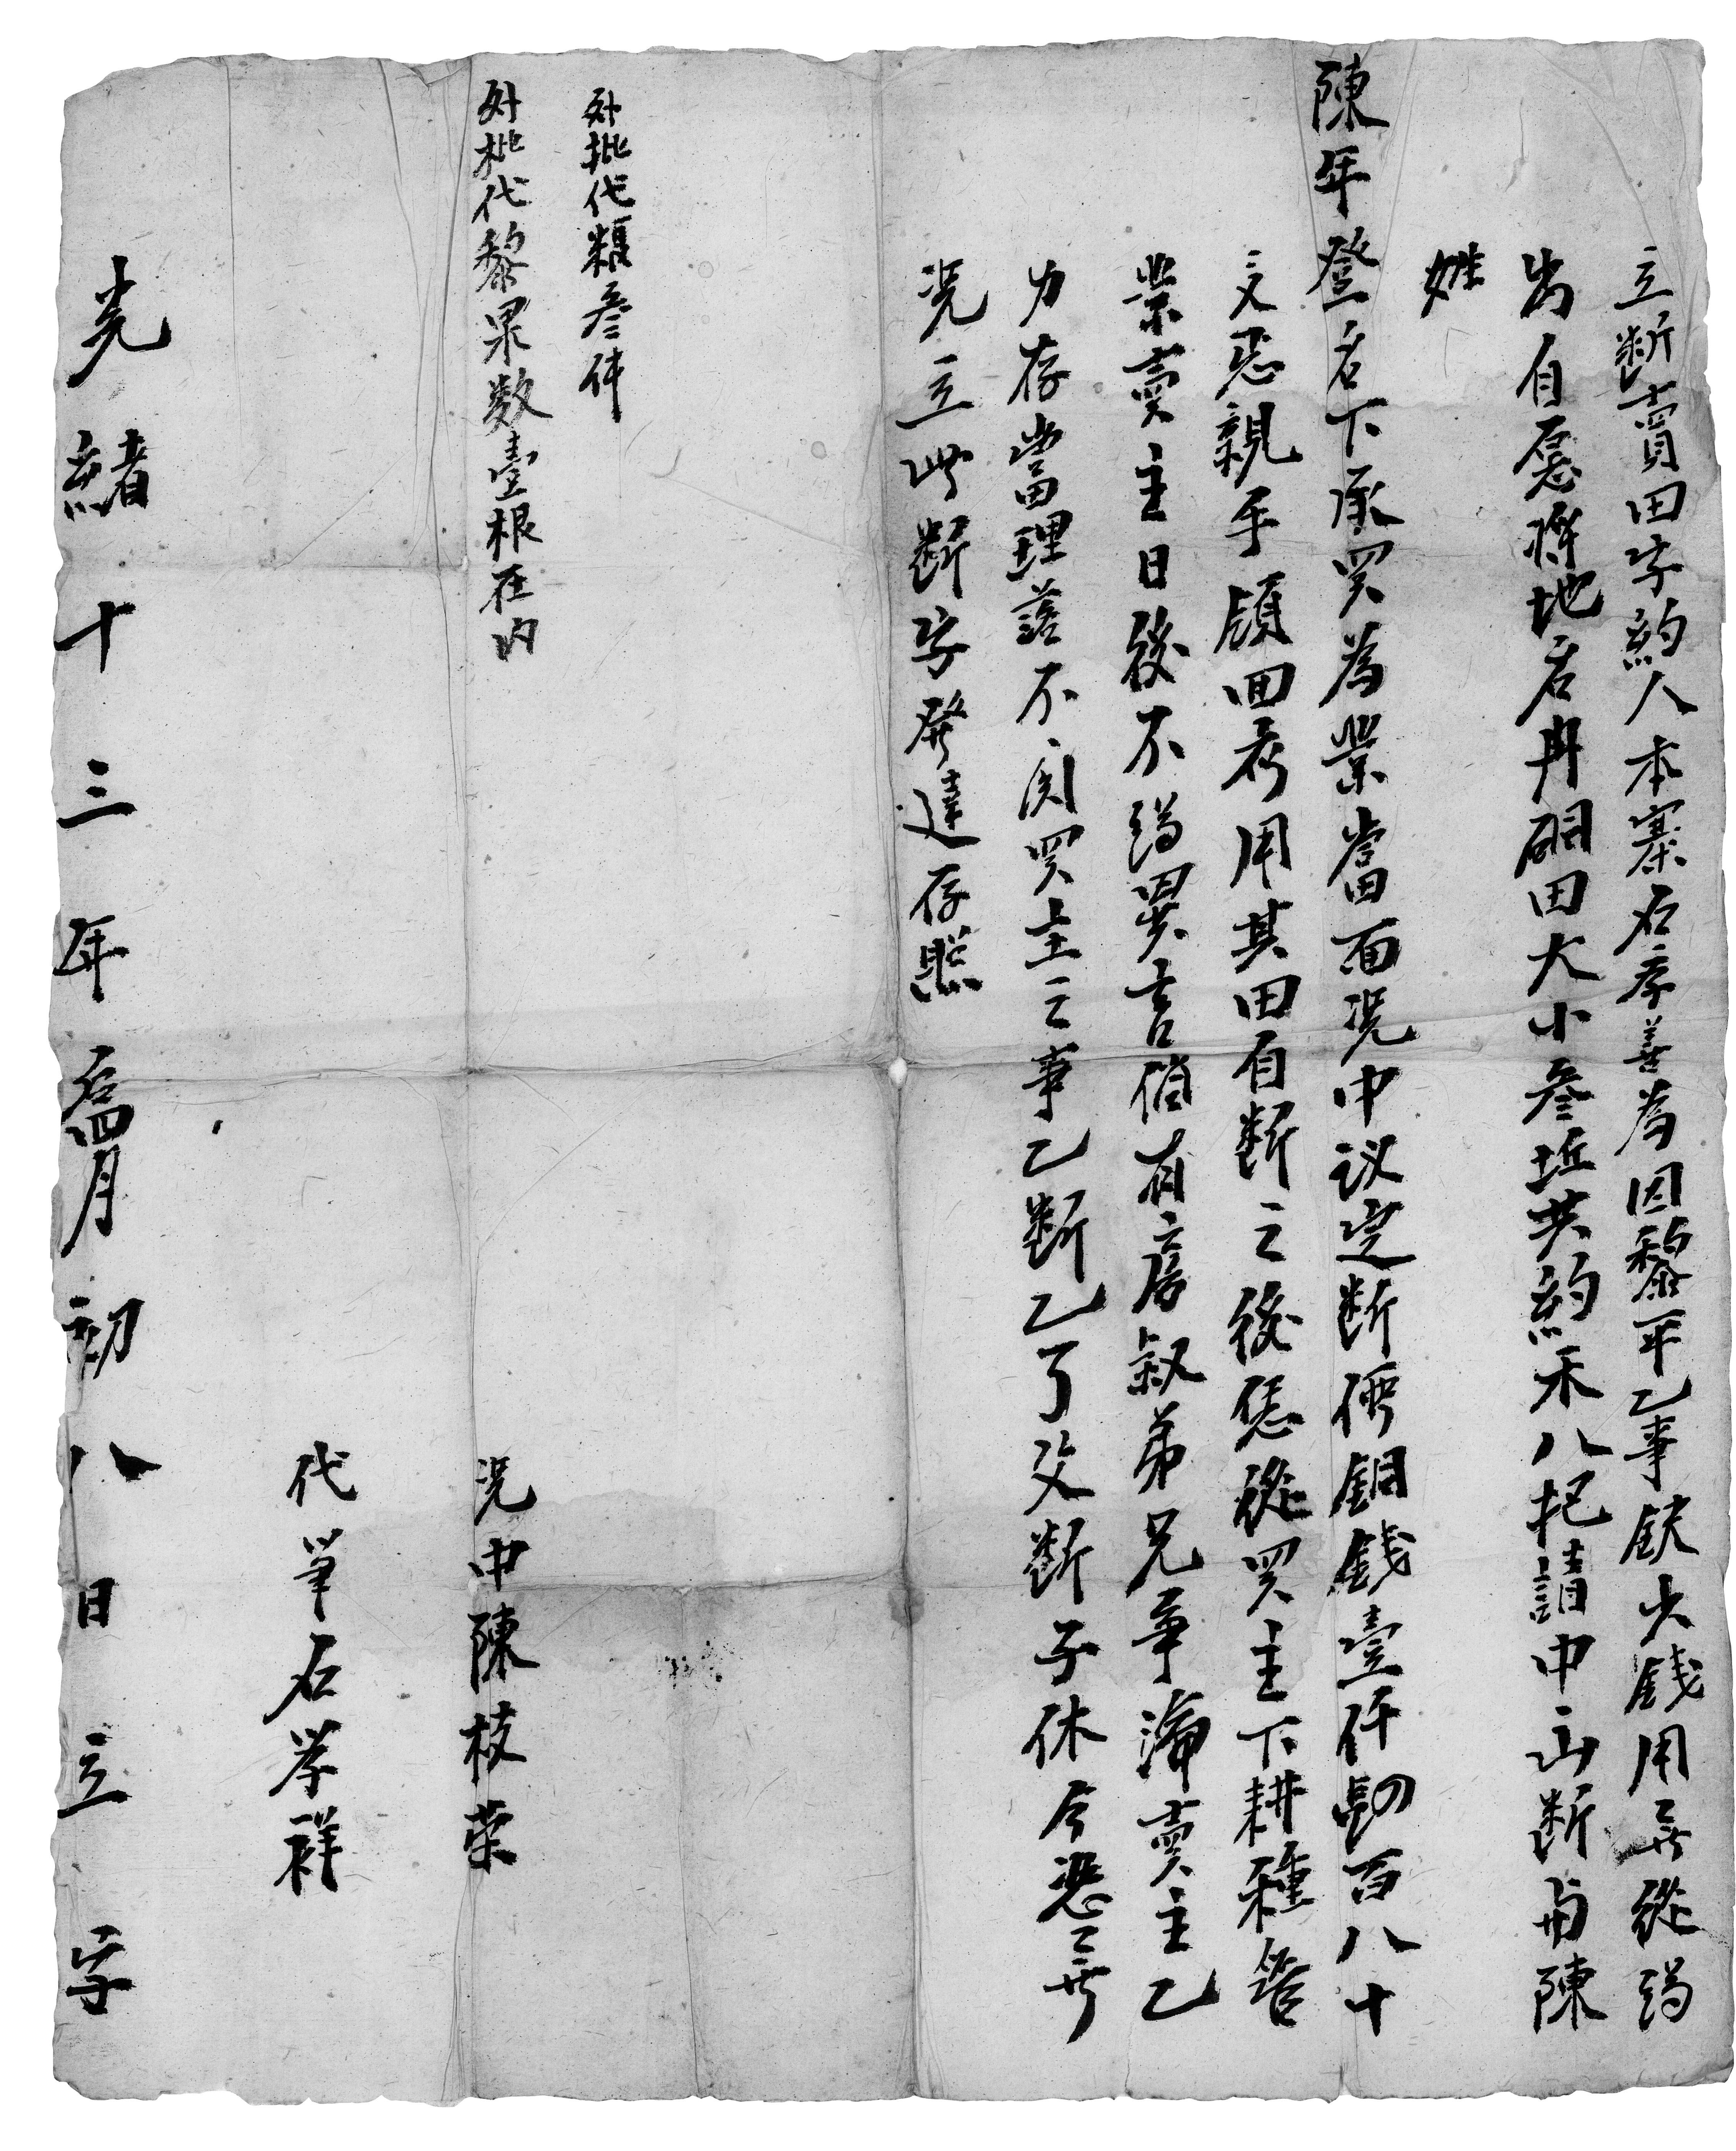 立断賣田字約人本寨石孝善為因黎平乙事缺少錢用無從得
出自愿將地名冉硐田大小叄坵共約禾八把請中上山断與陳
姓
陳年登名下承買為業當面凴中议定断價銅錢壹仟四百八十
文恁親手領回家用其田自断之後恁從買主下耕種管
業賣主日後不得異言倘有房叔弟兄爭論賣主乙
力存當理落不関買主之事乙断乙了父断子休今恐無
凴立此断字發達存照
外批代粮叄
外批代黎果数壹根在内
凴中陳枝荣
代筆石孝祥
光緒十三年四月初八日立字